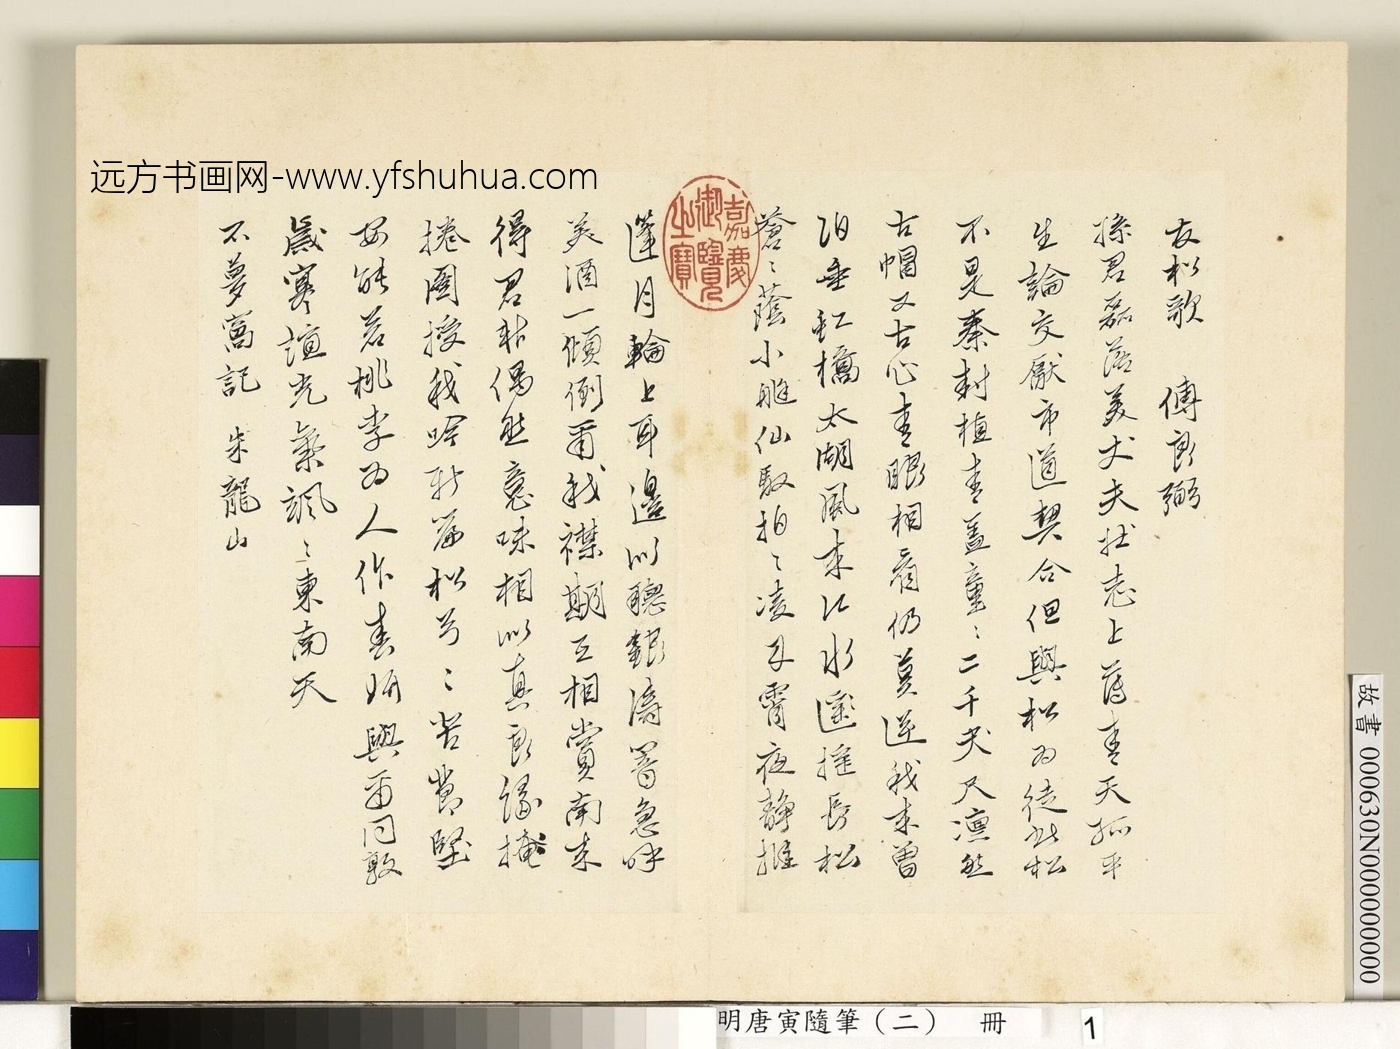 远方书画网-www.yfshuhua.com
友松歌 傅良弼
孫君磊落美丈夫壯志上薄青天孤平
生論交厭市道契合但與松為徒此松
不是秦封植青蓋童〻二千尺凜然
古帽又古心青眼相看仍莫逆我來曾
泊垂虹橋太湖風來江水遙推長松
蒼〻蔭小艇仙馭拍〻凌丹霄夜靜推
蓬月輪上耳邊似聽銀濤響急呼
美酒一傾倒爾我襟期互相賞南來
得君非偶然意味相似真良緣掩
捲圖授我吟新篇松兮〻苦節堅
安能若桃李為人作春妍與爾同敦
歲寒誼光氣颯〻東南天
不夢窩記 朱龍山
嘉慶御覽之寶
故書 000630N000000000
明唐寅隨筆(二) 冊 1